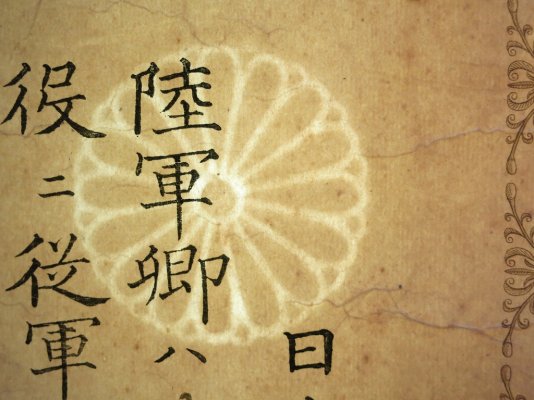 日
陸軍卿ハ
役ニ従軍